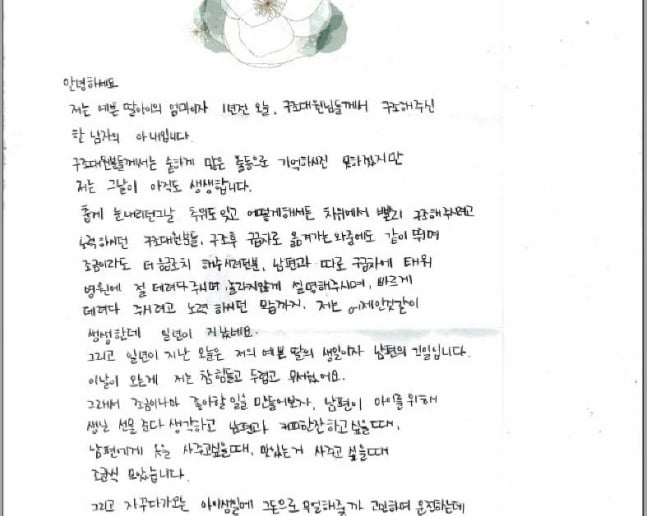 안녕하세요
저는 예쁜 딸아이의 엄마이자 1년전 오늘, 구조대원님들께서 구조해주신
한 남자의 아내입니다.
구조대원분들께서는 숱하게 많은 출동으로 기억하시진 못하겠지만
저는 그날이 아직도 생생합니다.
춥게 눈내리던그날 추위도잊고 어떻게해서든 차위에서 빨리 구조해주시려고
노력하시던 구조대원분들, 구조후 구급차로 옮겨가는 와중에도 같이 뛰며
조금이라도 더 응급조치 해주시려던분, 남편과 따로 구급차에 태워
병원에 절 데려다주시며, 놀라지않게 설명해주시며, 빠르게
데려다 주시려고 노력하시던 모습까지. 저는 어제인것같이
생생한데 일년이 지났네요.
그리고 일년이 지난 오늘은 저의 예쁜 딸의 생일이자 남편의 기일입니다.
이날이 오는게 저는 참 힘들고 두렵고 무서웠어요.
그래서 조금이나마 좋아할 일을 만들어보자, 남편이 아이를 위해
생일 선물 준다 생각하고 남편과 커피한잔하고싶을때,
남편에게 옷을 사주고싶을때, 맛있는거 사주고 싶을때
조금씩 모았습니다.
그리고 자꾸다가오는 아이생일에 그돈으로 무얼해줄까 고민하며 운전하는데